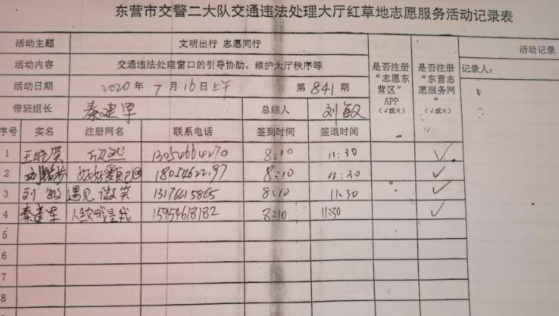 东营市交警二大队交通违法处理大厅红草地志愿服务活动记录表
活动主题 文明出行 志愿同行
活动内容 交通违法处理窗口的引导协助、维护大厅秩序等
活动日期 2020年7月16日上午 第841期
带班组长 秦建军 总结人 刘敏
是否注册“志愿东营区”APP（√或×）
是否注册“东营志愿服务网”（√或×）
活动记录
记录人：
序号 实名 注册网名 联系电话 签到时间 签退时间
1 8:10 11:30 √
2 好好爱自己 8:10 11:30 √
3 刘敏 遇见微笑 13176415865 8:10 11:30 √
4 秦建军 15954618182 8:10 11:30 √
5
6
7
8